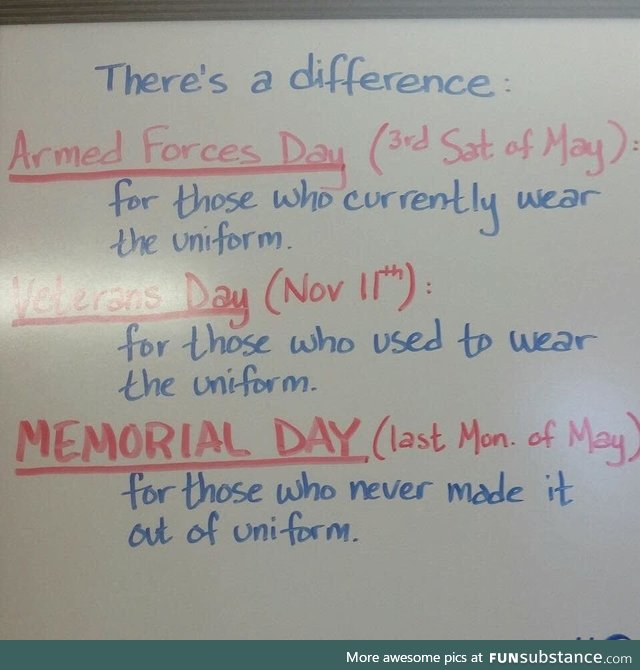 There's a difference:
Armed Forces Day (3rd Sat. of May):
for those who currently wear
the uniform.
Veterans Day (Nov 11th):
for those who used to wear
the uniform.
MEMORIAL DAY (last Mon. of May)
for those who never made it
out of uniform.
More awesome pics at FUNsubstance.com